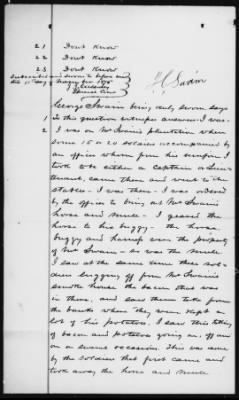 21 Dont Know
22 Dont Know
23 Dont Know
Subscribed and sworn to before me
this
George Swain being duly sworn says
1 in this question witness answers I was
2 I was on Mr Swain's plantation when
some 15 or 20 soldiers accompanied by
an officer whom from his uniform I
took to be either a Captain or Lieu-
tenant, came there and went to the
stables - I was there - I was ordered
by the officer to bring out Mr Swain's
horse and mule - I geared the
horse to his buggy - the horse
buggy and harness were the property
of Mr Swain - so was the mule
I saw at the same time these sol-
diers lugging off from Mr Swain's
smoke house the bacon that was
in there, and saw them take from
the banks where they were kept a
lot of his potatoes. I saw this taking
of bacon and potatoes going on, off and
on on several occasions. This was done
by the soldiers that first came and
took away the horse and mule